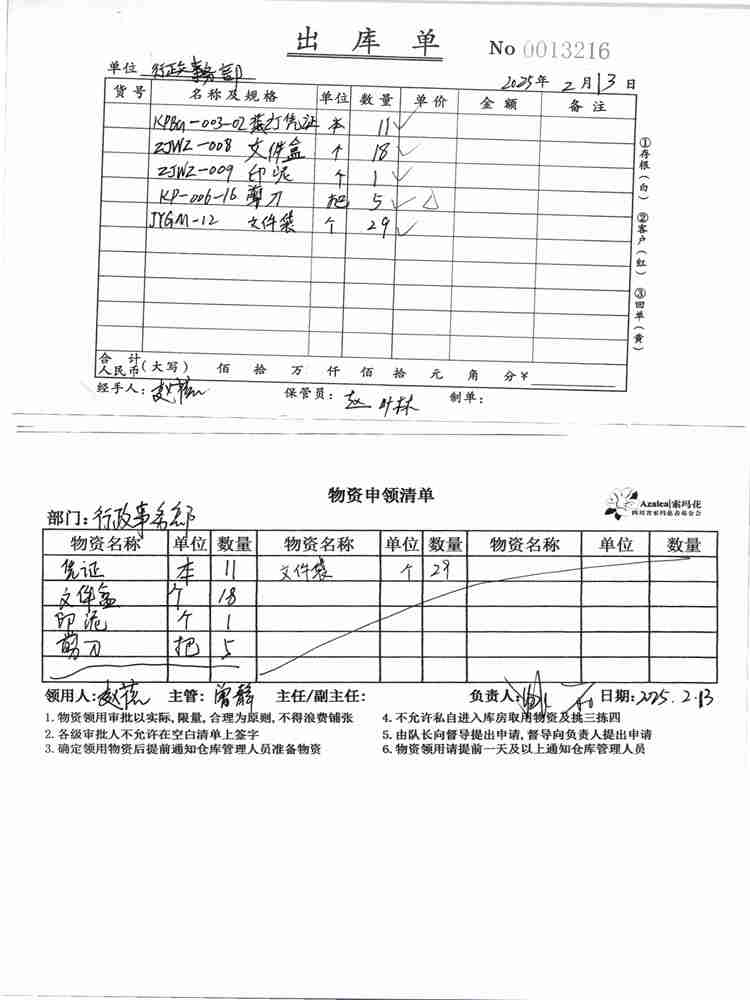 出 库 单 No 0013216
单位 行政事务部 2025年 2月13日
货号 名称及规格 单位 数量 单价 金额 备注
KPBG-003-02装订凭证 本 11 ✓
ZJWZ-008 文件盒 个 18 ✓
ZJWZ-009 印泥 个 1 ✓
KP-006-16 剪刀 把 5 ✓ △
JYGM-12 文件袋 个 29 ✓
①存根(白) ②客户(红) ③回单(黄)
合计
人民币(大写) 佰 拾 万 仟 佰 拾 元 角 分 ¥
经手人: 赵 保管员: 赵叶林 制单:
物资申领清单
Azalea|索玛花
四川省索玛慈善基金会
部门:行政事务部
物资名称 单位 数量 物资名称 单位 数量 物资名称 单位 数量
凭证 本 11 文件袋 个 29
文件盒 个 18
印泥 个 1
剪刀 把 5
领用人:赵 主管:曾静 主任/副主任: 负责人: 日期:2025.2.13
1.物资领用审批以实际,限量,合理为原则,不得浪费铺张 4.不允许私自进入库房取用物资及挑三拣四
2.各级审批人不允许在空白清单上签字 5.由队长向督导提出申请,督导向负责人提出申请
3.确定领用物资后提前通知仓库管理人员准备物资 6.物资领用请提前一天及以上通知仓库管理人员